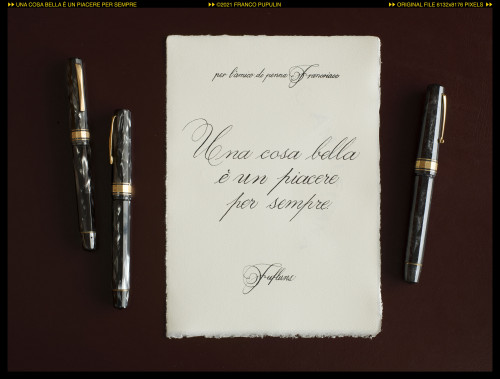 UNA COSA BELLA È UN PIACERE PER SEMPRE ©2021 FRANCO PUPULIN ORIGINAL FILE 6132x8176 PIXELS
per l'amico di penna Francesco
Una cosa bella
è un piacere
per sempre.
Fufluns